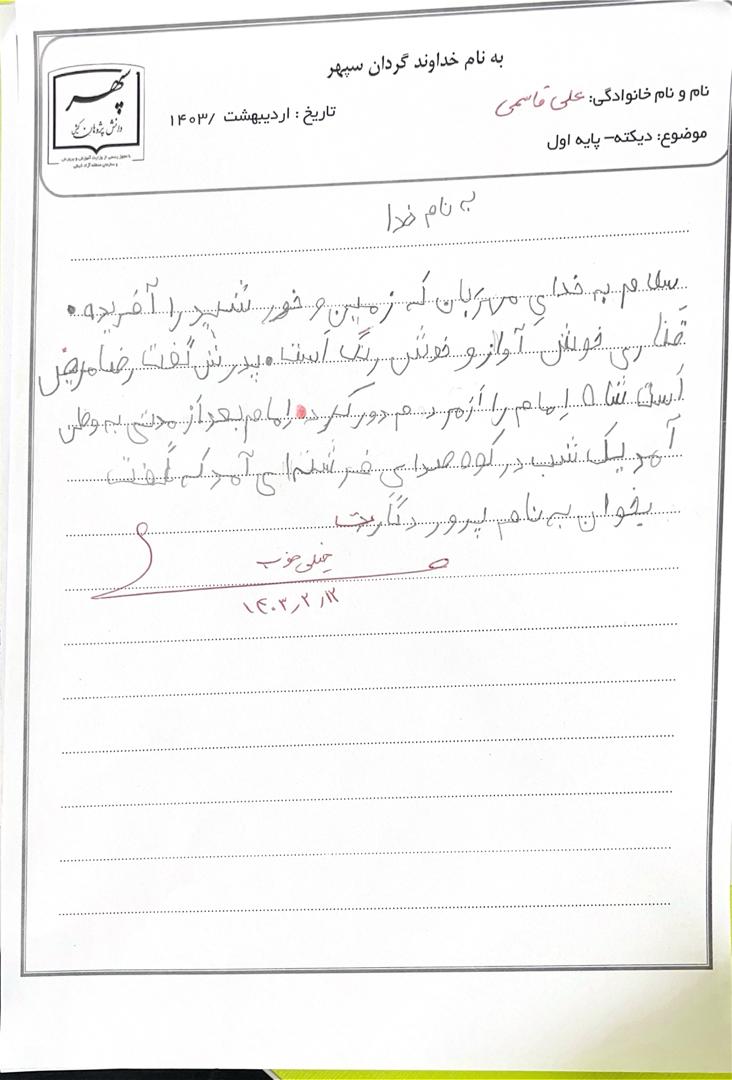 به نام خداوند گردان سپهر
نام و نام خانوادگی: علی قاسمی
تاریخ : اردیبهشت /۱۴۰۳
موضوع: دیکته– پایه اول
سپهر
دانش پژوهان
به نام خدا
سلام به خدای مهربان که زمین و خور شید را آفریده .
قناری خوش آواز و خوش رنگ است . پدرش گفت رضا مریض
است شاه امام را از مردم دور کرد . امام بعد از مدتی به وطن
آمد یک شب در کوه صدای فرشته ای آمد که گفت
بخوان به نام پرور دگارت
خیلی خوب
۱۴۰۳٫۲٫۱۲